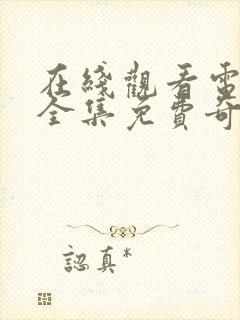 在綫觀看電
全集免費奇
認真*